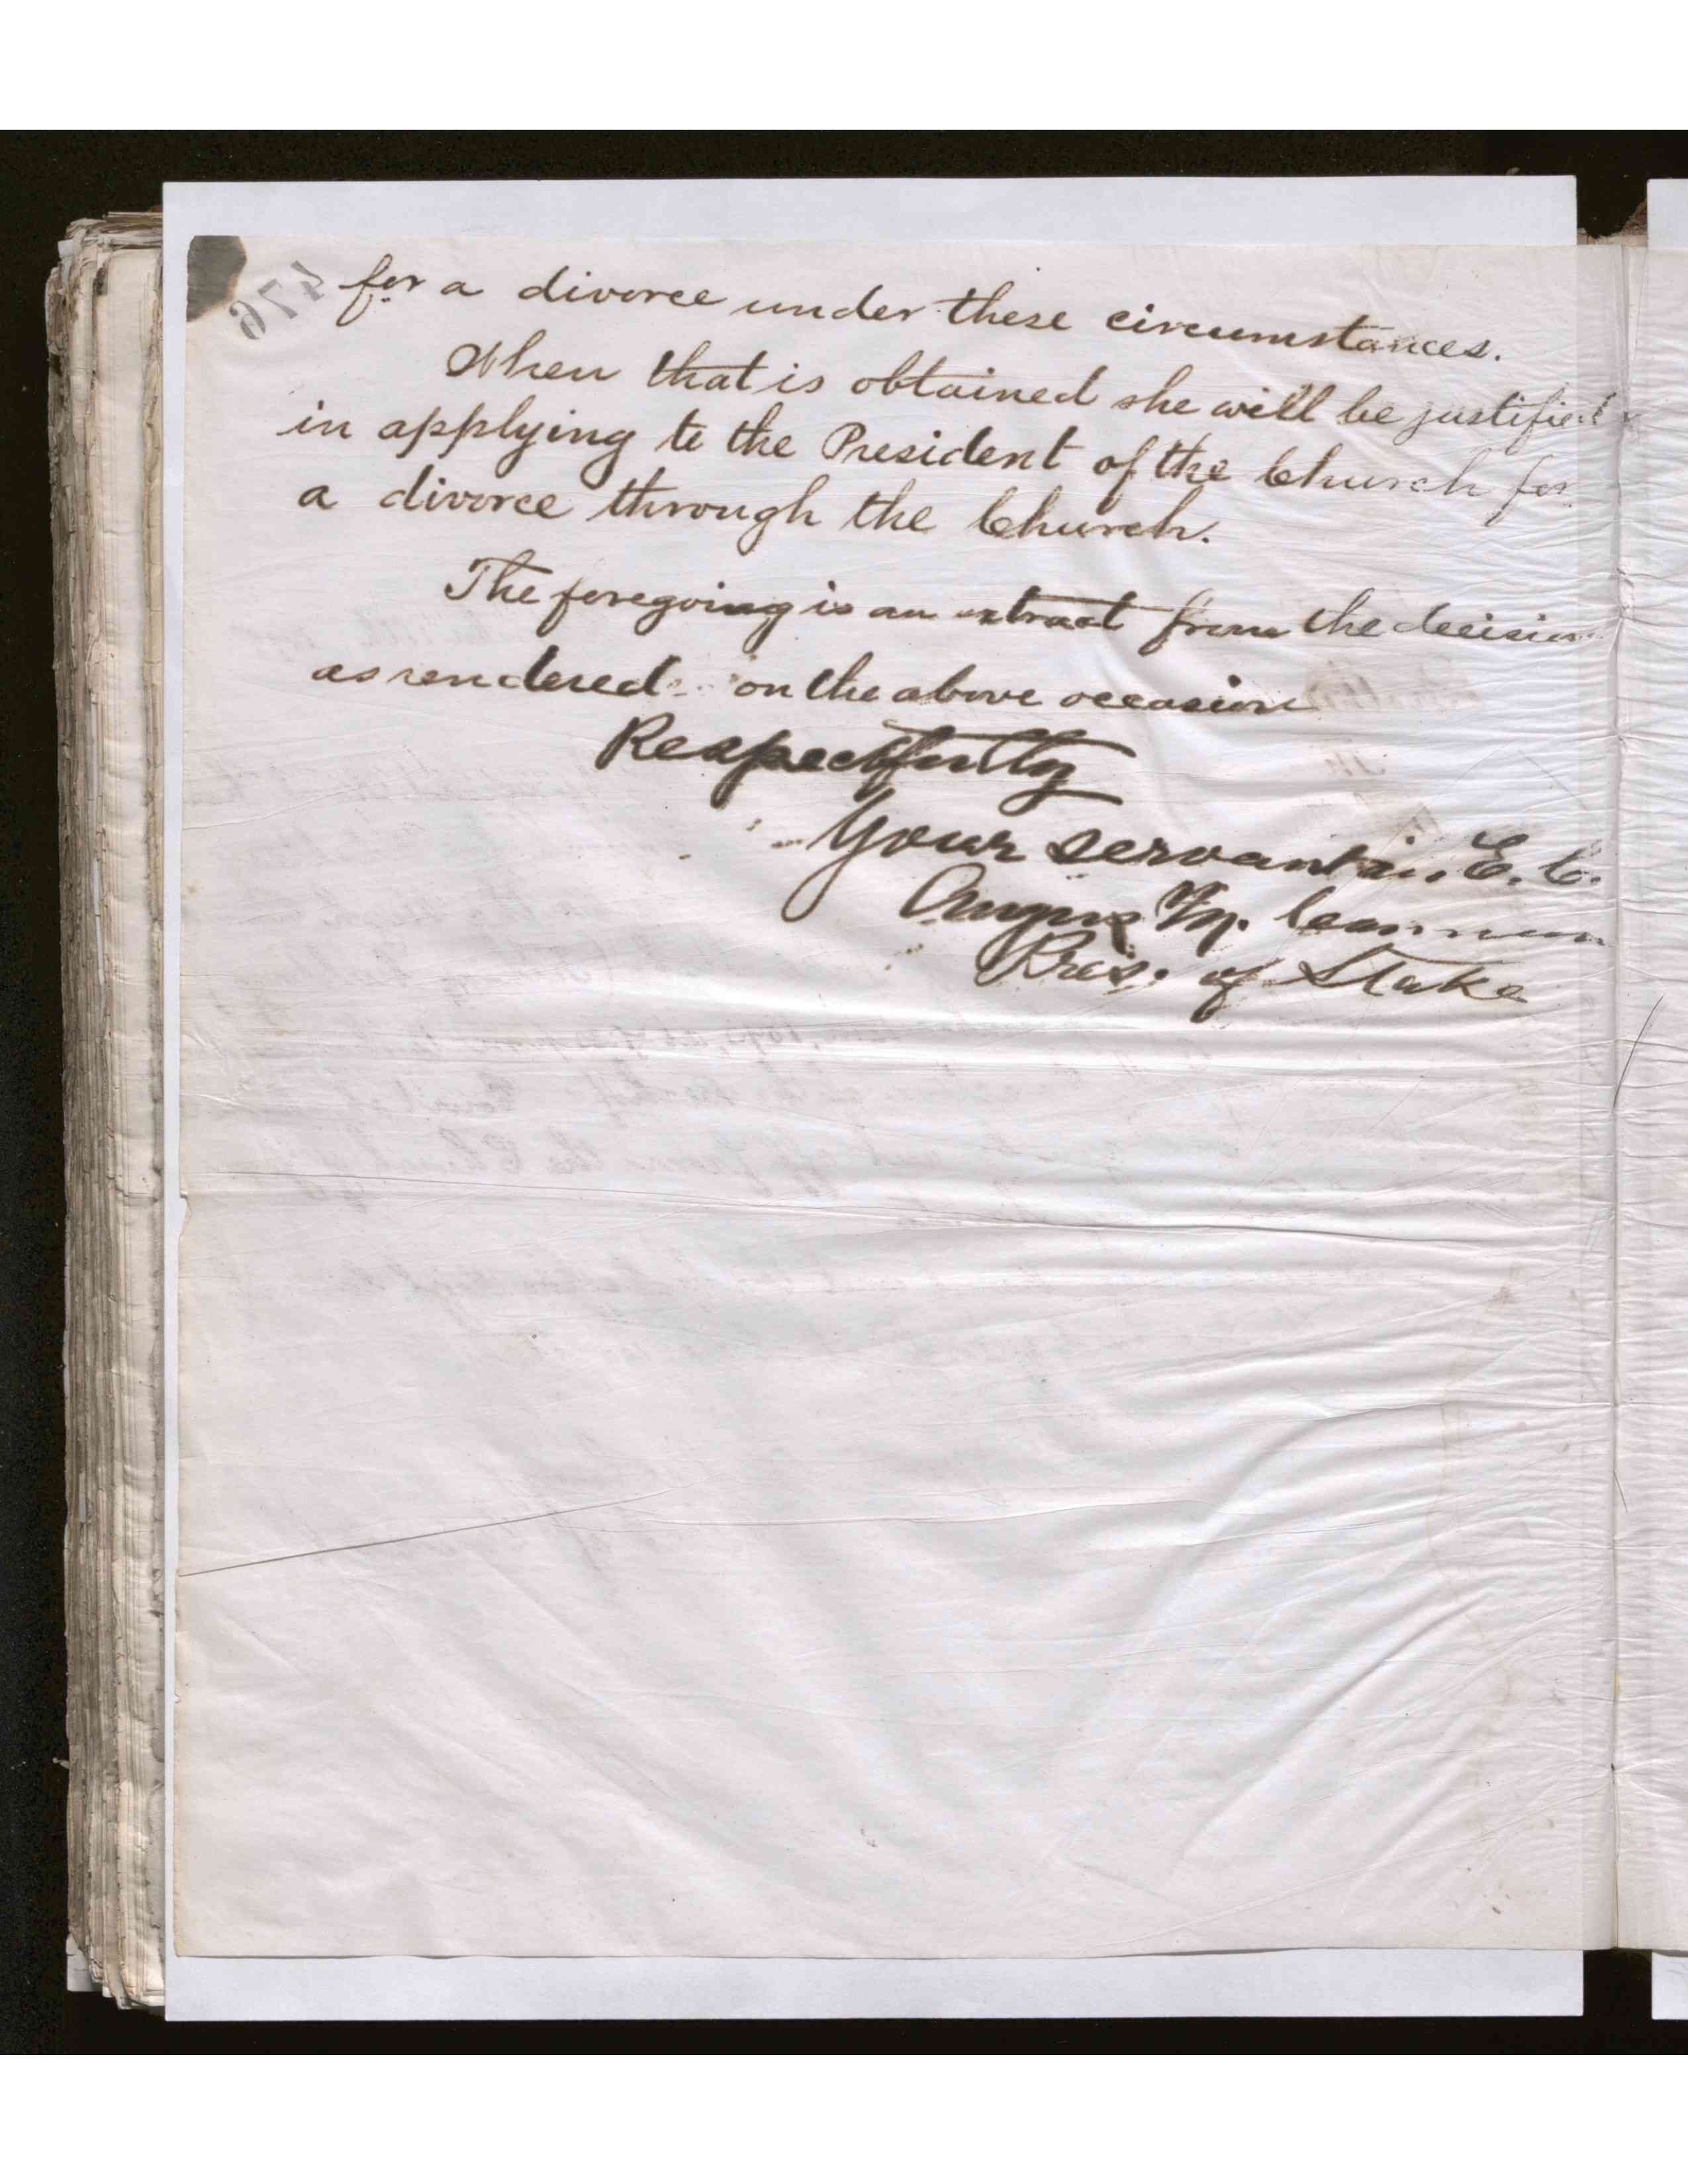 476
for a divorce under these circumstances.
When that is obtained she will be justified
in applying to the President of the Church for
a divorce through the Church.
The foregoing is an extract from the decision
as rendered on the above occasion
Respectfully
Your servant in E. C.
Angus M. Cannon
Pres. of Stake